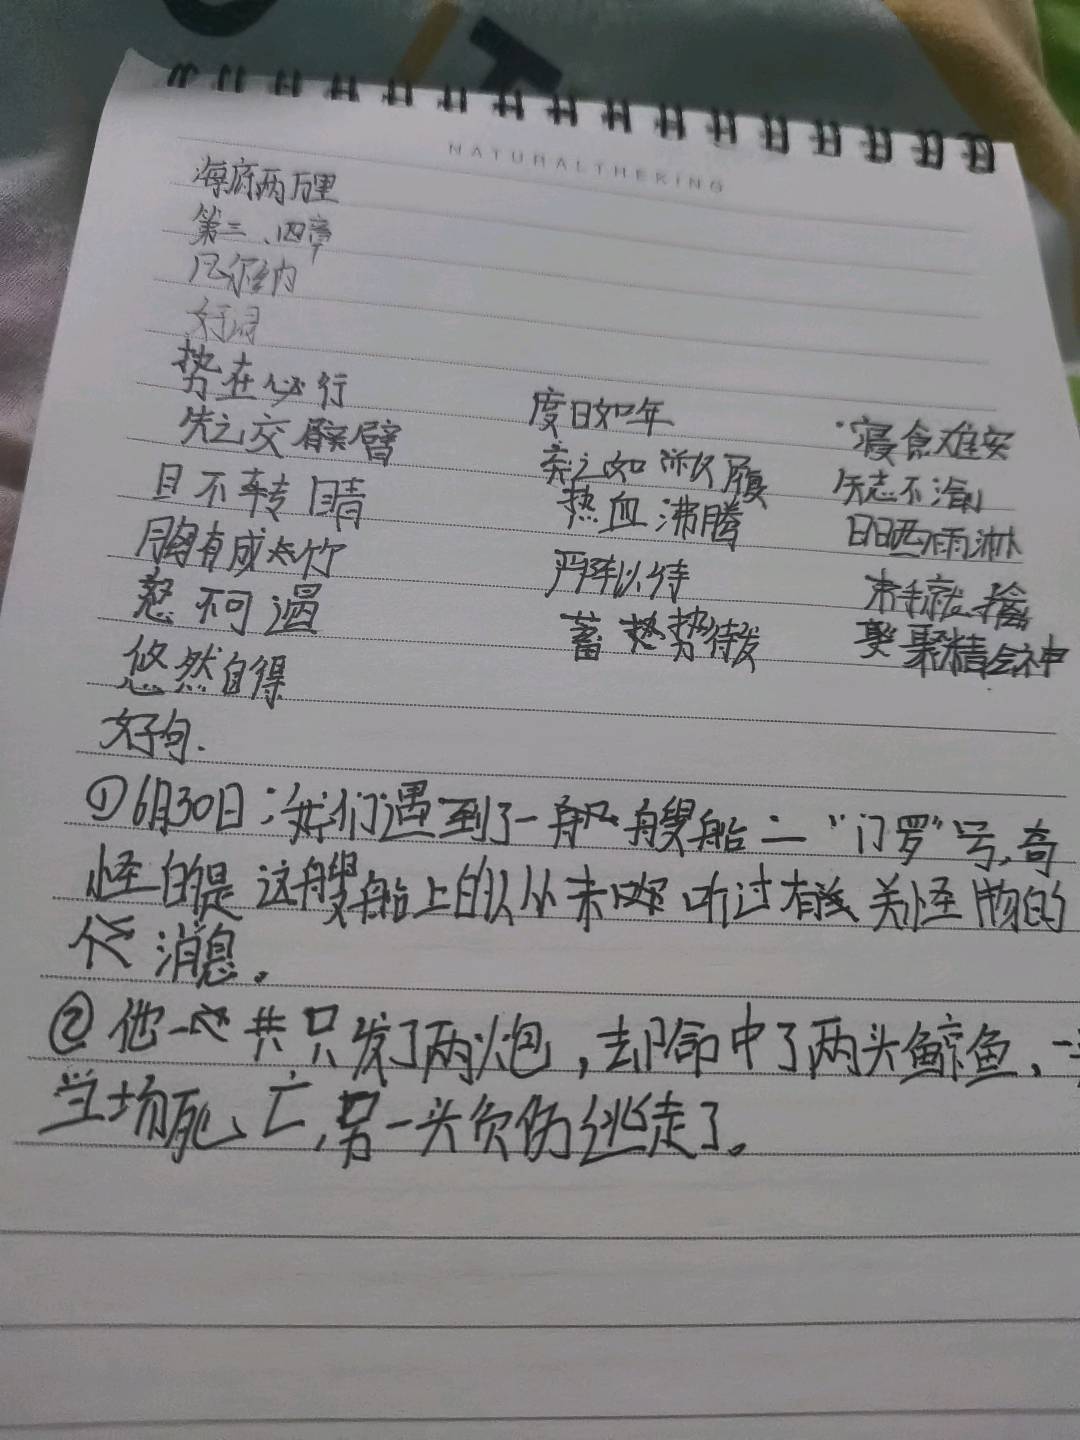 NATURALTHEKING
海底两万里
第三、四章
凡尔纳
好词
势在必行 度日如年 寝食难安
失之交臂 弃之如敝履 矢志不渝
目不转睛 热血沸腾 日晒雨淋
胸有成竹 严阵以待 束手就擒
怒不可遏 蓄势待发 聚精会神
悠然自得
好句.
①6月30日:我们遇到了一艘船二"门罗"号,奇
怪的是这艘船上的人从未听过有关怪物的
消息。
②他一共只发了两炮,却命中了两头鲸鱼,一
当场死亡,另一头负伤逃走了。